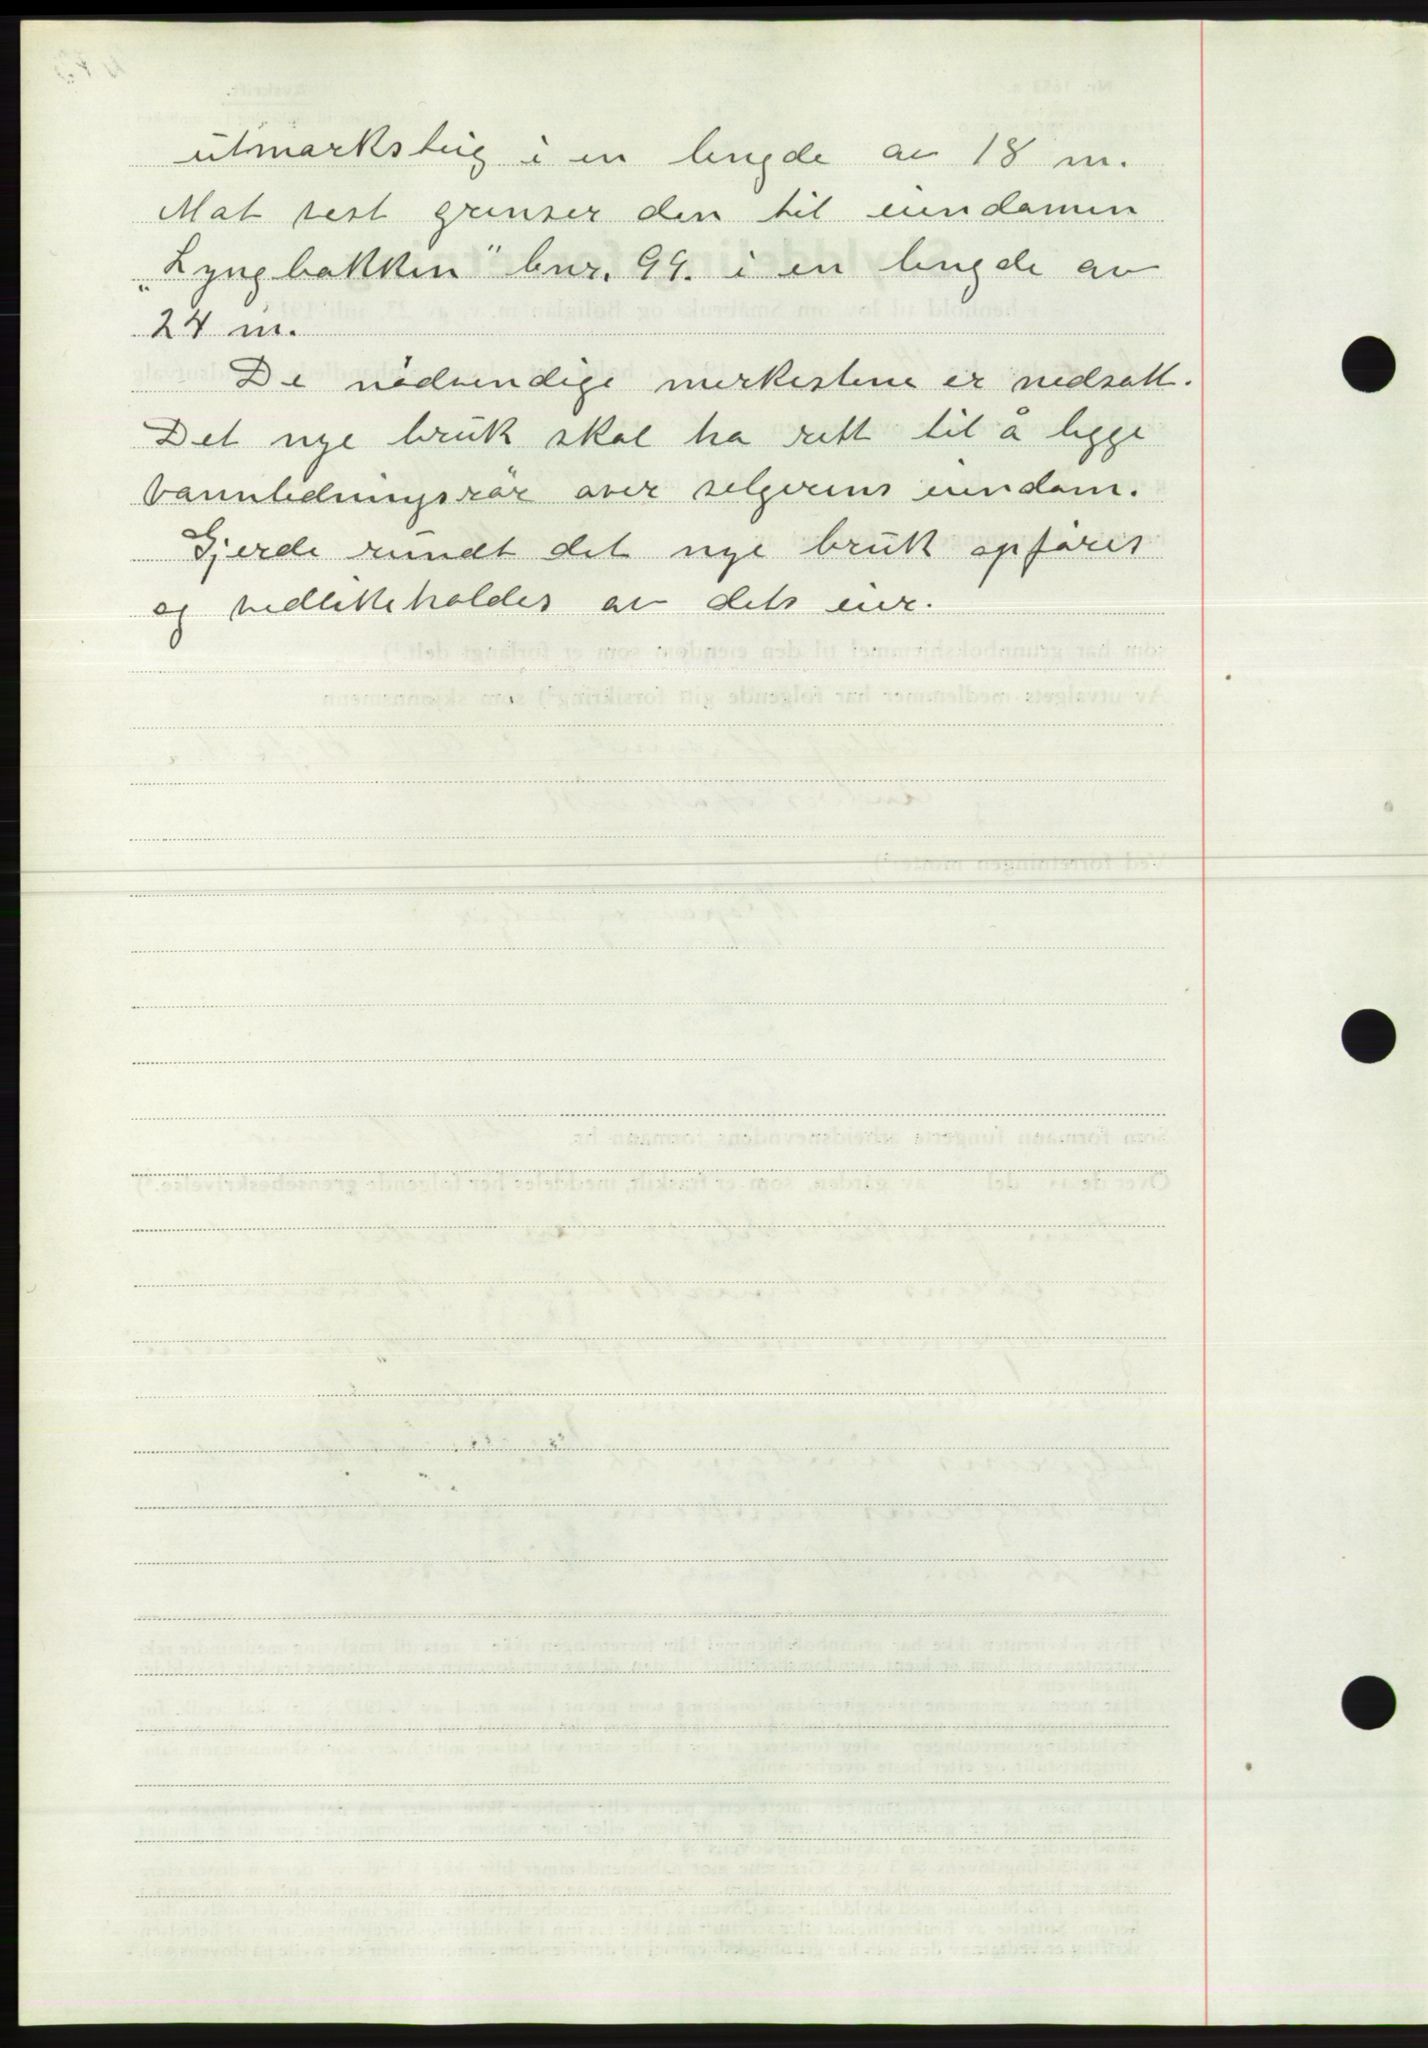 utmarksteig i en lengde av 18 m.
Mot vest grenser den til eiendomen
„Lyngbakken" bnr. 99. i en lengde av
24 m.
De nödvendige merkestene er nedsatt.
Det nye bruk skal ha rett til å legge
vannledningsrör over selgerens eiendom.
Gjerde rundt det nye bruk opføres
og vedlikeholdes av dets eier.